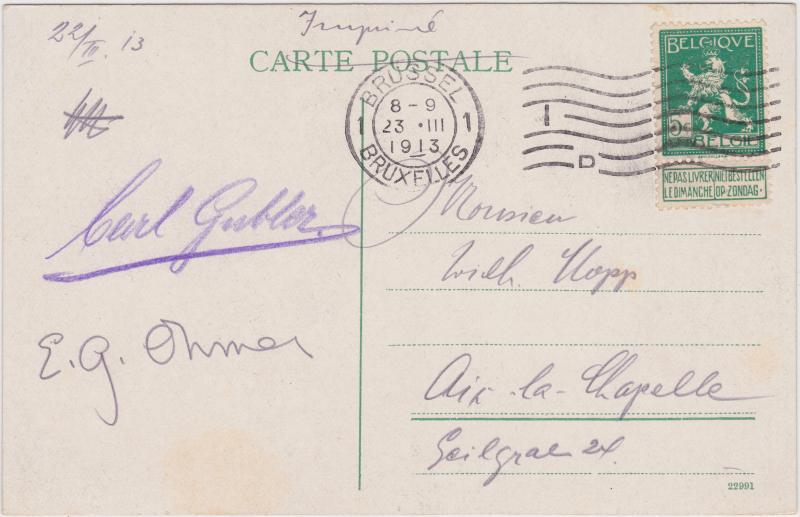 22/III. 13
Imprimé
CARTE POSTALE
BRUSSEL
8-9
1 23 · III 1
1913
BRUXELLES
I
D
BELGIQVE
5c
BELGIË
NE PAS LIVRER LE DIMANCHE
NIET BESTELLEN OP ZONDAG
Carl Gubler.
E. G. Ohmer
Monsieur
Wilh. Hopp
Aix-la-Chapelle
Geilgrae 24
22991